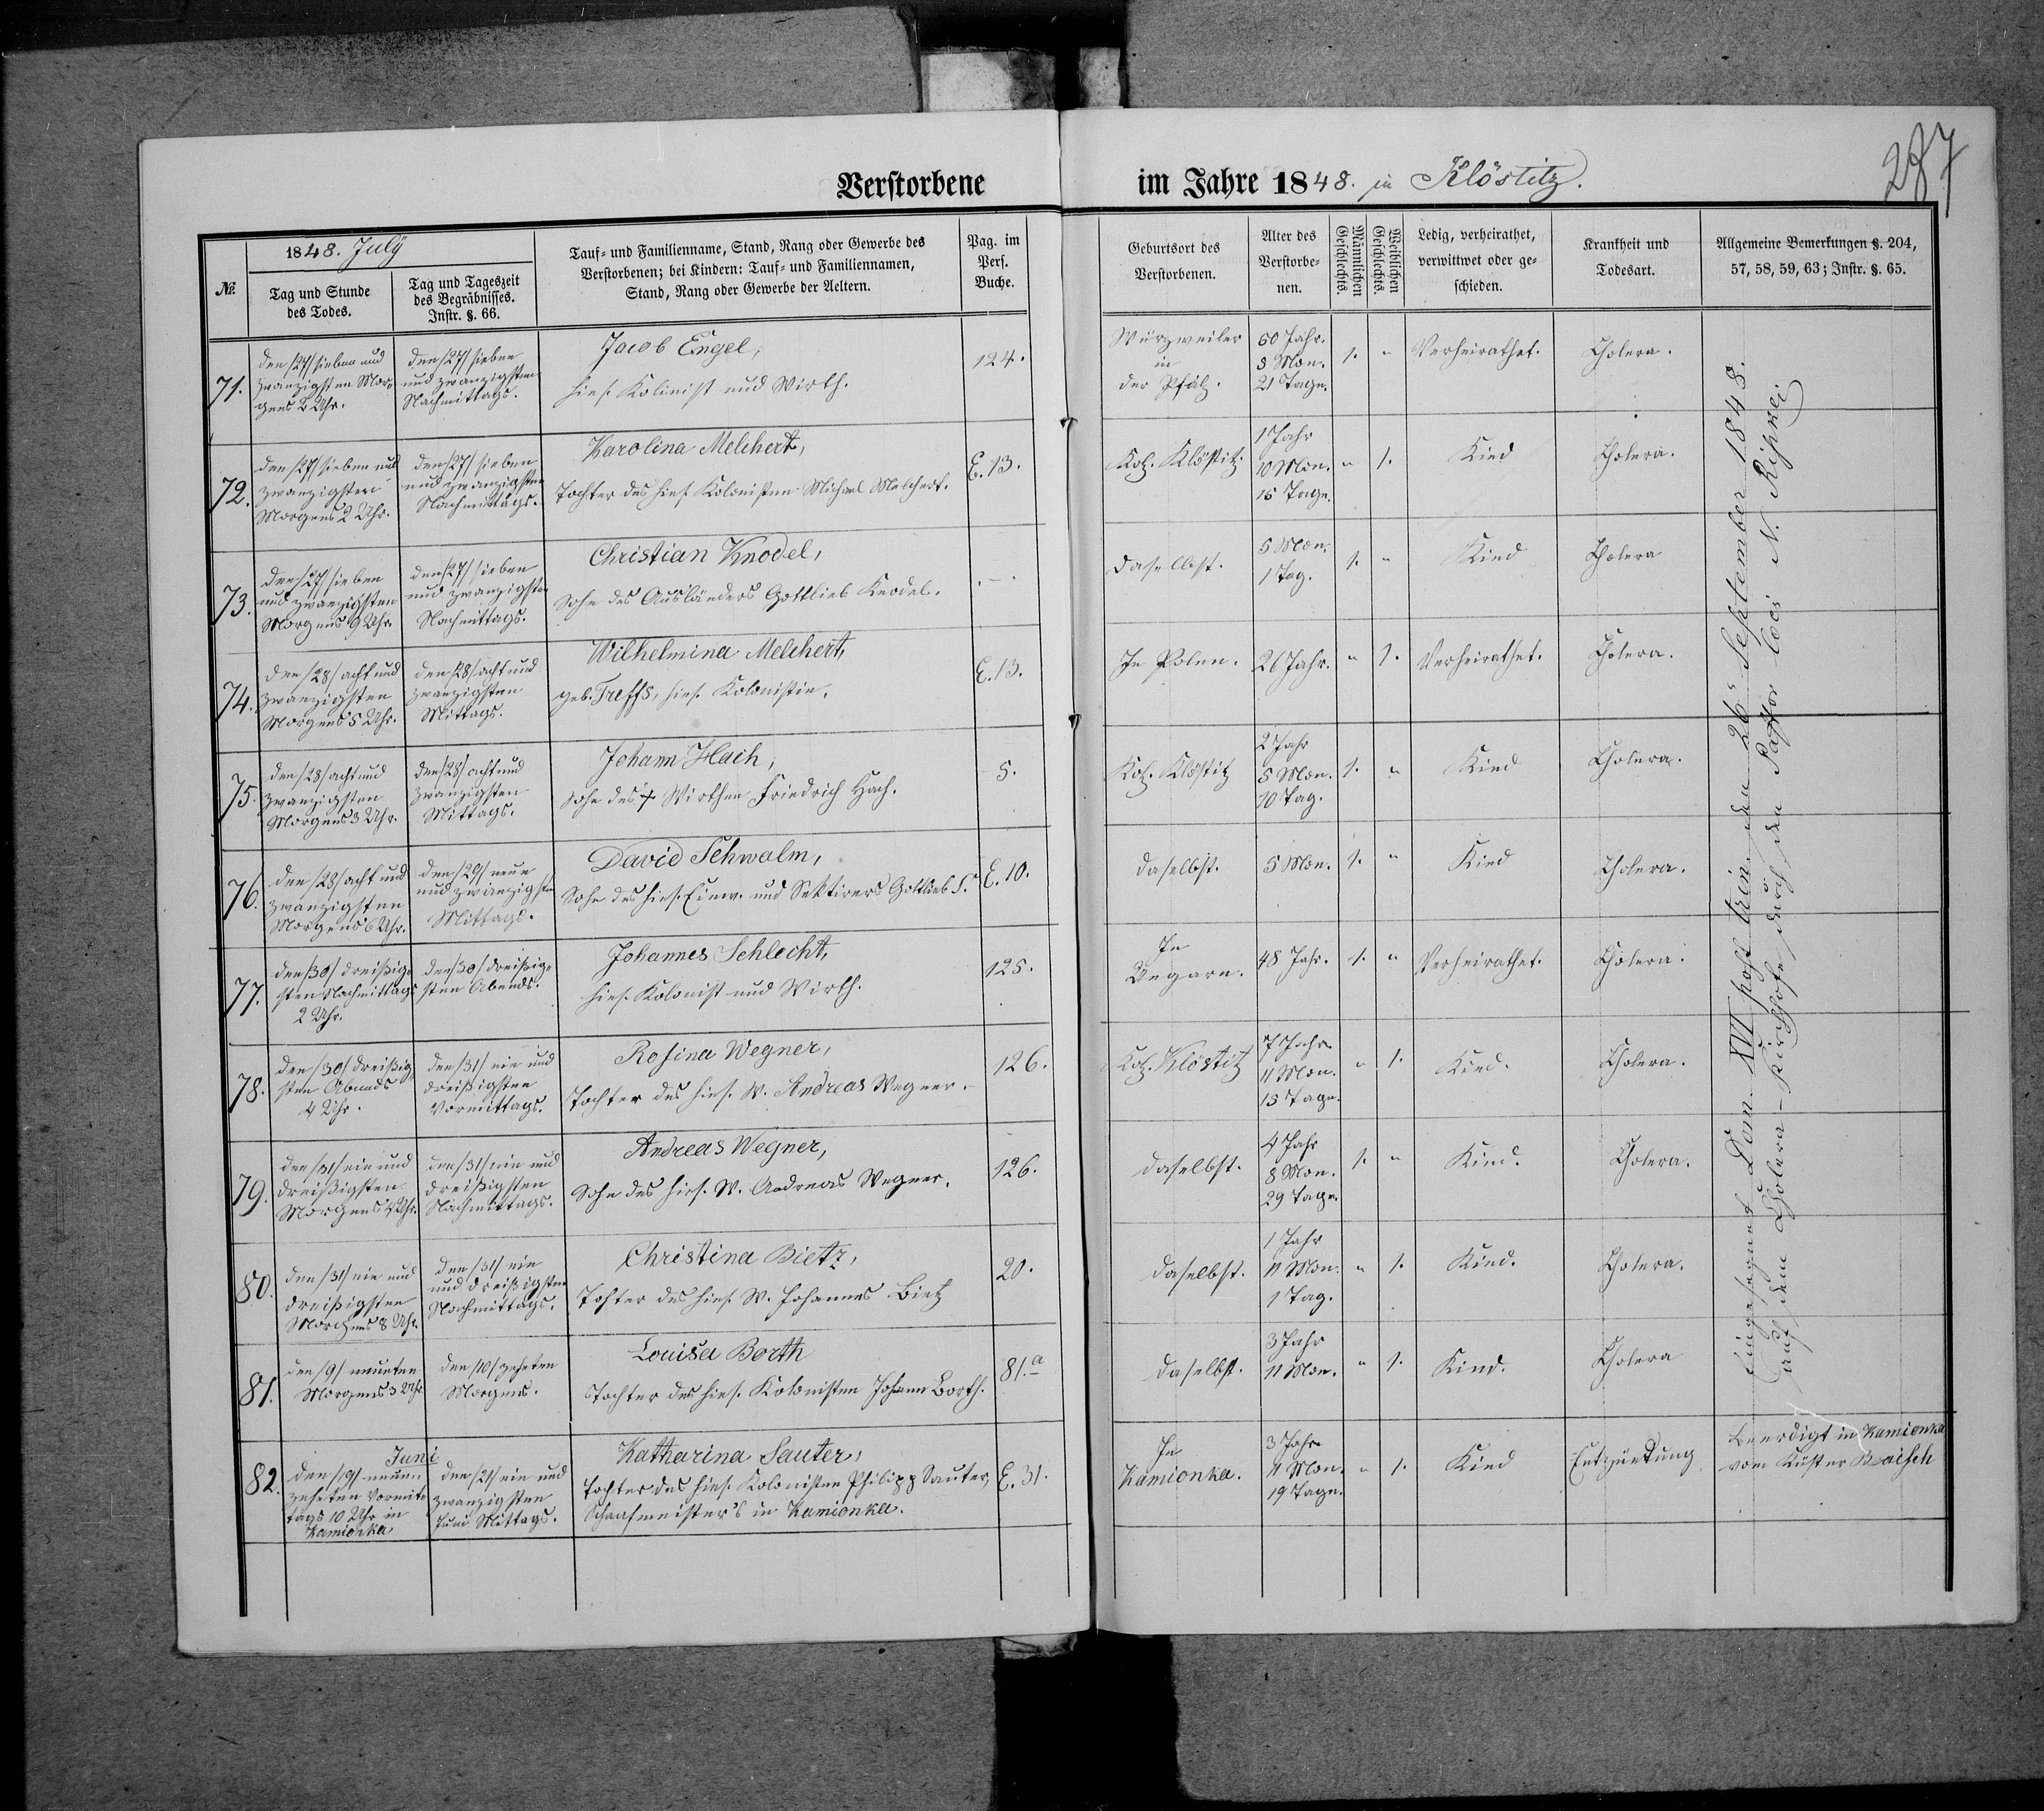 Verstorbene im Jahre 1848. in Klöstitz.
277
№.
1848. Julÿ
Tag und Stunde
des Todes.
Tag und Tageszeit
des Begräbnisses.
Instr. §. 66.
Tauf- und Familienname, Stand, Rang oder Gewerbe des
Verstorbenen; bei Kindern: Tauf- und Familiennamen,
Stand, Rang oder Gewerbe der Aeltern.
Pag. im
Pers.
Buche.
Geburtsort des
Verstorbenen.
Alter des
Verstorbe-
nen.
Männlichen
Geschlechts.
Weiblichen
Geschlechts.
Ledig, verheirathet,
verwittwet oder ge-
schieden.
Krankheit und
Todesart.
Allgemeine Bemerkungen §. 204,
57, 58, 59, 63; Instr. §. 65.
71.
den /27/ sieben und
zwanzigsten Mor-
gens 2 Uhr.
den /27/ sieben
und zwanzigsten
Nachmittags.
Jacob Engel,
hies. Kolonist und Wirth.
124.
Würzweiler
in
der Pfalz.
60 Jahr.
8 Mon.
21 Tage.
1.
"
Verheirathet.
Cholera.
72.
den /27/ sieben und
zwanzigsten
Morgens 2 Uhr.
den /27/ sieben
und zwanzigsten
Nachmittags.
Karolina Melchert,
Tochter des hies. Kolonisten Michael Melchert.
E. 13.
Kol. Klöstitz.
1 Jahr
10 Mon.
15 Tage.
"
1.
Kind
Cholera.
73.
den /27/ sieben
und zwanzigsten
Morgens 9 Uhr.
den /27/ sieben
und zwanzigsten
Nachmittags.
Christian Knodel,
Sohn des Ausländers Gottlieb Knodel.
. — .
daselbst.
5 Mon.
1 Tag.
1.
"
Kind
Cholera
74.
den /28/ acht und
zwanzigsten
Morgens 5 Uhr.
den /28/ acht und
zwanzigsten
Mittags.
Wilhelmina Melchert,
geb. Treffs, hies. Kolonistin.
E. 13.
In Polen.
26 Jahr.
"
1.
Verheirathet.
Cholera.
75.
den /28/ acht und
zwanzigsten
Morgens 3 Uhr.
den /28/ acht und
zwanzigsten
Mittags.
Johann Hach,
Sohn des † Wirthen Friedrich Hach.
5.
Kol. Klöstitz
2 Jahr
5 Mon.
10 Tag.
1.
"
Kind
Cholera.
76.
den /28/ acht und
zwanzigsten
Morgens 6 Uhr.
den /29/ neun
und zwanzigsten
Mittags.
David Schwalm,
Sohn des hies. Einw. und Sektirers Gottlieb S.
E. 10.
daselbst.
5 Mon.
1.
"
Kind
Cholera.
77.
den /30/ dreißig-
sten Nachmittags
2 Uhr.
den /30/ dreißig-
sten Abends.
Johannes Schlecht,
hies. Kolonist und Wirth.
125.
In
Ungarn.
48 Jahr.
1.
"
Verheirathet.
Cholera.
78.
den /30/ dreißig-
sten Abends
4 Uhr.
den /31/ ein und
dreißigsten
Vormittags.
Rosina Wegner,
Tochter des hies. W. Andreas Wegner.
126.
Kol. Klöstitz
7 Jahr
11 Mon.
15 Tage.
"
1.
Kind.
Cholera.
79.
den /31/ ein und
dreißigsten
Morgens 4 Uhr.
den /31/ ein und
dreißigsten
Nachmittags.
Andreas Wegner,
Sohn des hies. W. Andreas Wegner.
126.
daselbst.
4 Jahr
8 Mon.
29 Tage
1.
"
Kind.
Cholera.
80.
den /31/ ein und
dreißigsten
Morgens 8 Uhr.
den /31/ ein
und dreißigsten
Nachmittags.
Christina Bietz,
Tochter des hies. W. Johannes Bietz
20.
daselbst.
1 Jahr
11 Mon.
1 Tag.
"
1.
Kind.
Cholera.
81.
den /9/ neunten
Morgens 3 Uhr
den /10/ zehnten
Morgens.
Louisa Borth
Tochter des hies. Kolonisten Johann Borth.
81.a
daselbst.
3 Jahr
11 Mon.
"
1.
Kind.
Cholera
82.
Juni
den /19/ neun-
zehnten Vormit-
tags 10 Uhr in
Kamionka
den /21/ ein und
zwanzigsten
Juni Mittags.
Katharina Sauter,
Tochter des hies. Kolonisten Philipp Sauter,
Schaafmeister's in Kamionka.
E. 31.
In
Kamionka.
3 Jahr
11 Mon.
19 Tage.
"
1.
Kind
Entzündung
Beerdigt in Kamionka
vom Küster Raisch
Eingesegnet Dom. XVI post trin. den 26. September 1848.
auf dem Cholera-Kirchhofe, durch den Pastor loci N.